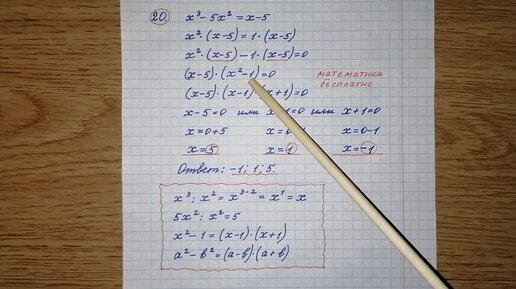 20 x³ - 5x² = x - 5
x² · (x - 5) = 1 · (x - 5)
x² · (x - 5) - 1 · (x - 5) = 0
(x - 5) · (x² - 1) = 0
математика
бесплатно
(x - 5) · (x - 1) (x + 1) = 0
x - 5 = 0 или x 1 = 0 или x + 1 = 0
x = 0 + 5 x = 0 x = 0 - 1
x = 5 x = 1 x = -1
Ответ: -1; 1; 5.
x³ : x² = x³⁻² = x¹ = x
5x² : x² = 5
x² - 1 = (x - 1) · (x + 1)
a² - b² = (a - b) · (a + b)